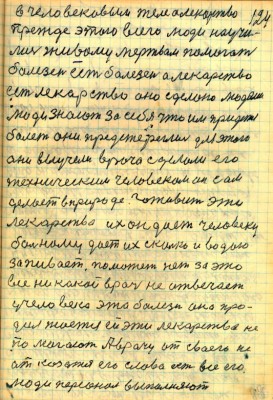 в человековым тем алекарство 124
прежде этого всего люди научи-
лих живому мертвам помогать
болезен ест болезен а лекарство
ест лекарство оно сделоно людьми
люди знают за себя что им придти
болет они предстереглих для этого
они выучели врача сделоли его
техническим человеком он сам
делает вприроде. Гоживит эти
лекарства их он дает человеку
больному дает их сколько и водою
запивает, поможет нет за это
все никакой врач не отвечает
учеловека это болезн она про-
дил жается ей эти лекарства не
по могают Аврачу от своего не
от казатя его слова ест все его
люди персонал выполняют